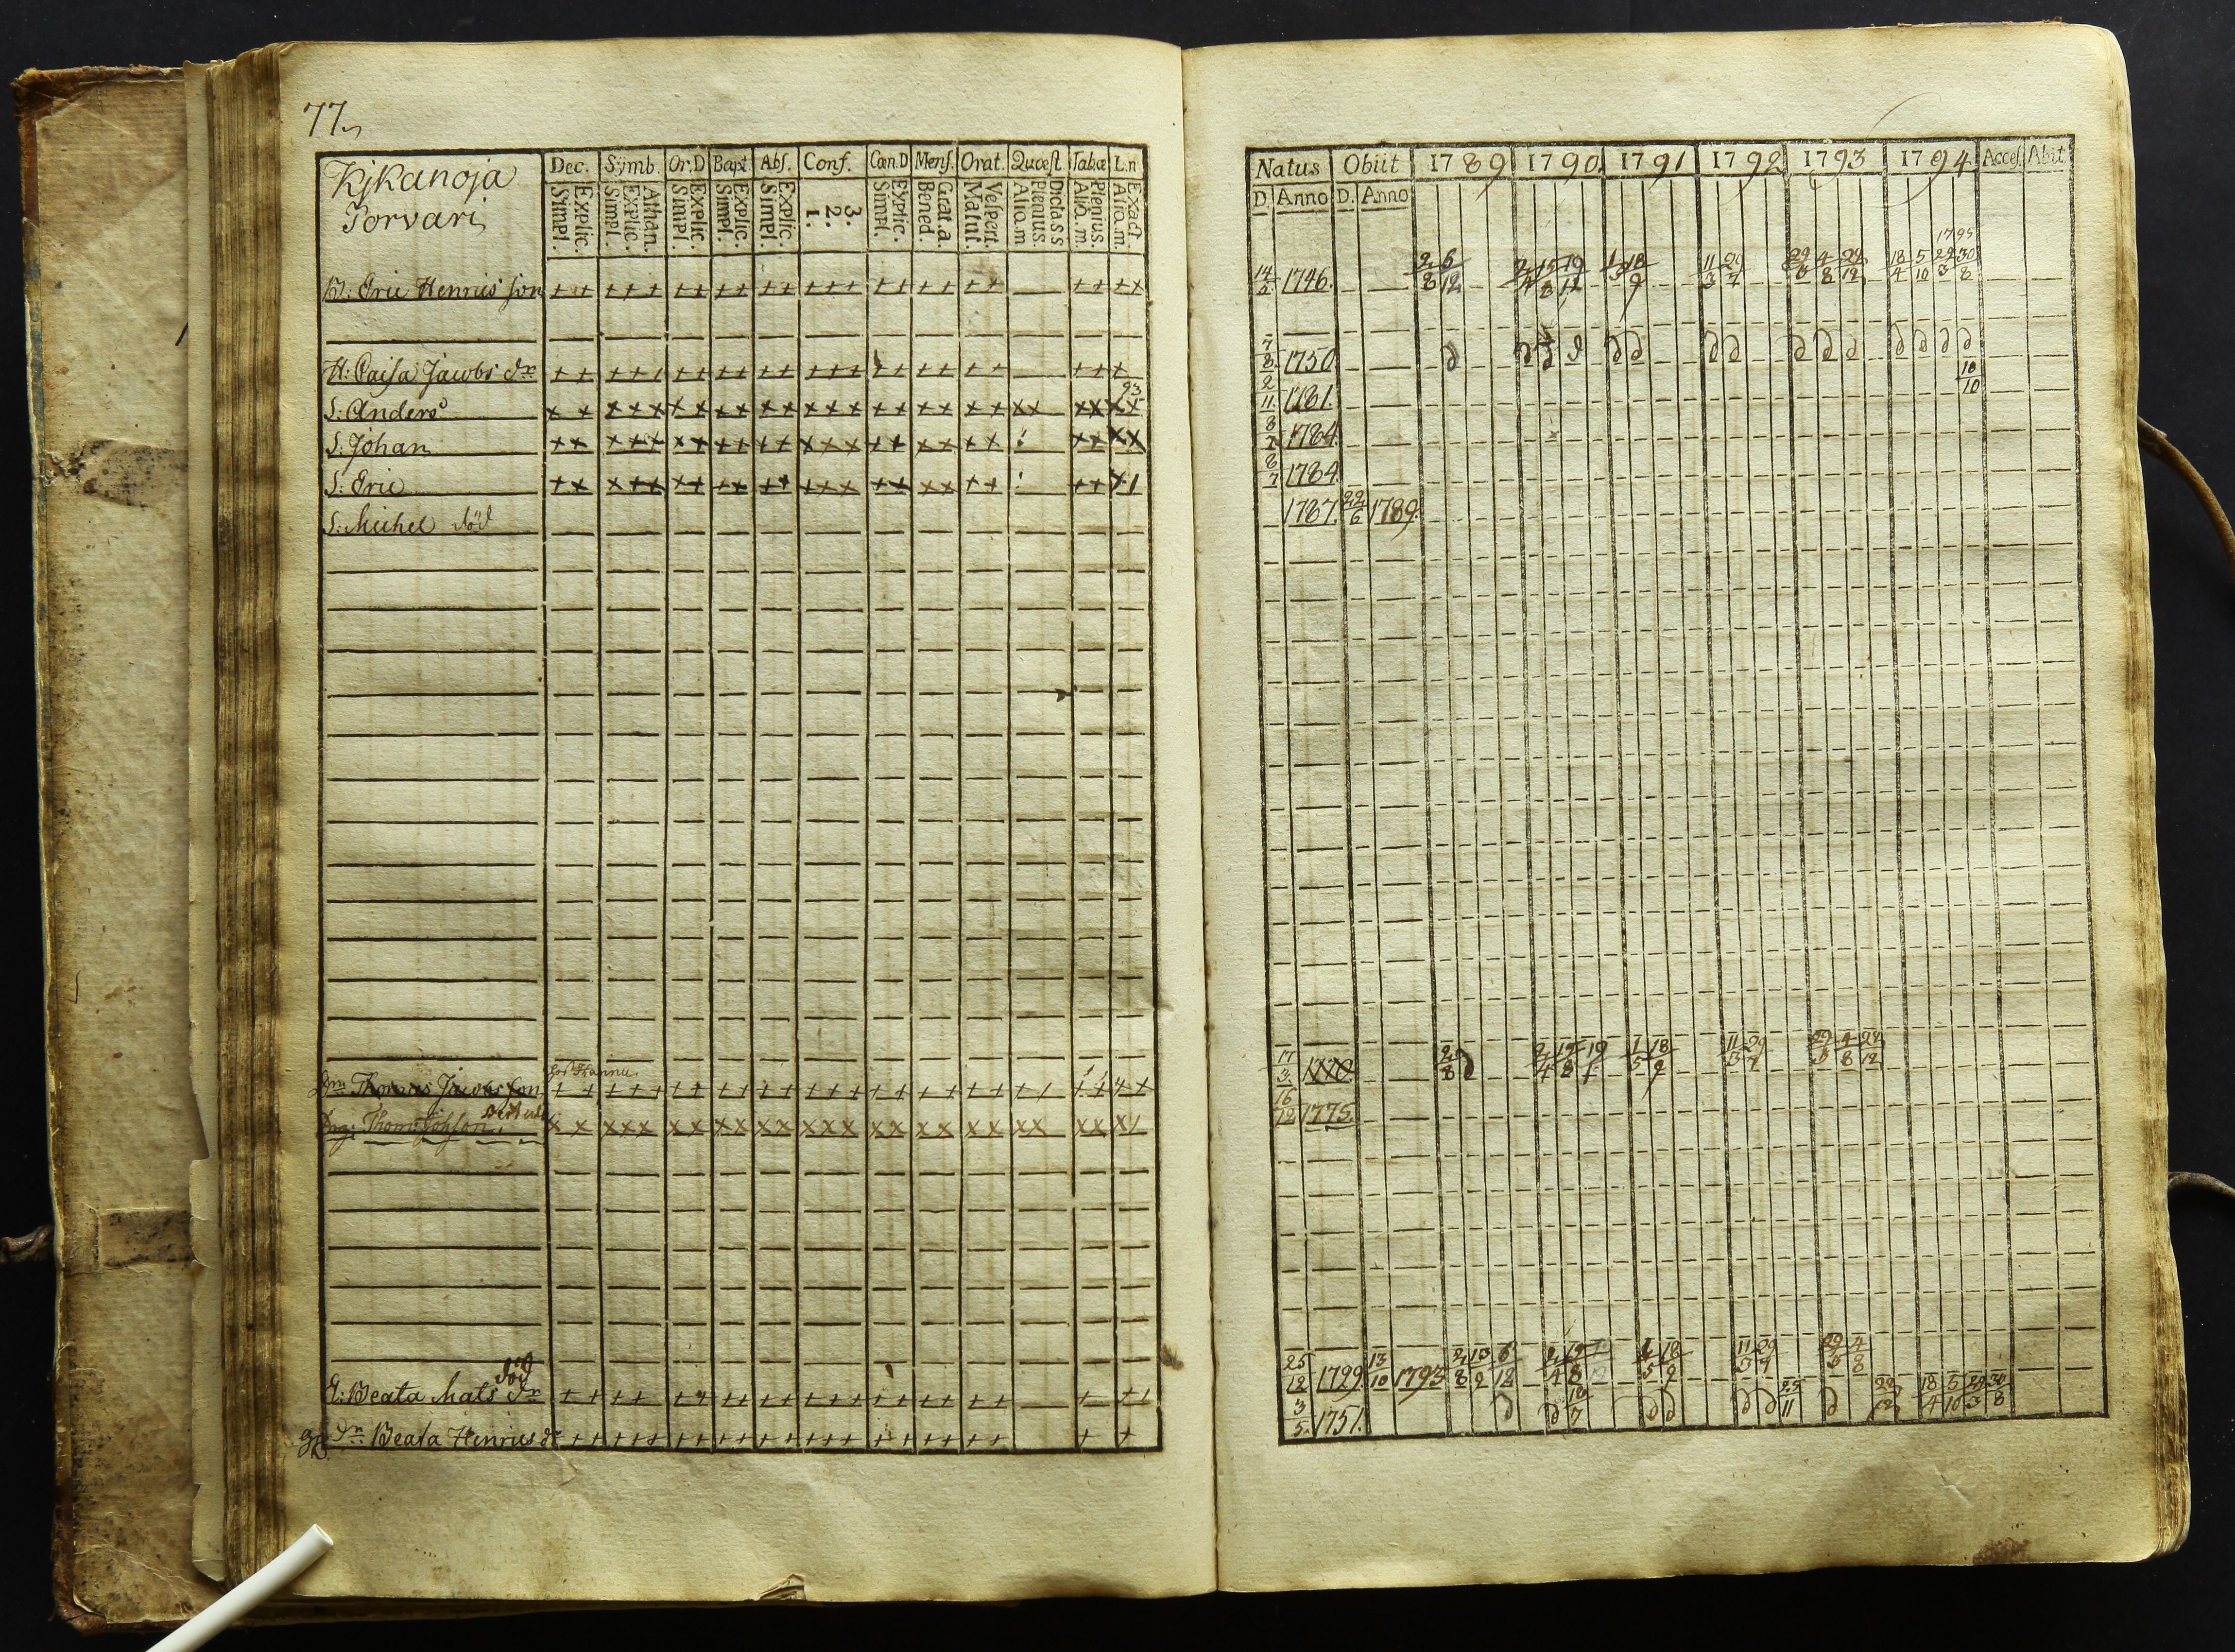 77.
Kjkanoja
Porvari
Dec. Symb. Or.D Bapt Abs. Conf. Cœn.D Mens. Orat. Quæst. Tabæ L.n
Explic. Simpl. Athan. Explic. Simpl. Explic. Simpl. Explic. Simpl. Explic. Simpl. 3. 2. 1. Explic. Simpl. Grat.a. Bened. Vespert. Matut. Dicta s s Plenius. Aliq.m Plenius. Aliq.m. Exact. Aliq.m.
B: Eric Henrics son
H: Caisa Jacobs dr
S: Anders
S: Johan
S: Eric
S: Michel död
hos Hannu
Thomas Jacobsson
Thom: Johson
E: Beata Mats dr död
Beata Henrics dr
Natus Obiit 1789 1790 1791 1792 1793 1794 Acces. Abit
D Anno D. Anno
1795
14/2 1746. 2/8 6/12 2/4 15/8 19/12 1/5 18/9 11/3 29/7 29/3 4/8 29/12 18/4 5/10 29/3 30/8
7/8 1750
18/10
2/11 1781.
1784.
8/7 1784
1787. 22/6 1789.
17/3 1770 2/8 2/4 15/8 1/5 18/9 11/3 29/7 29/3 4/8 29/12
16/12 1775.
25/12 1729 13/10 1793 2/8 13/9 6/12 2/4 1/5 18/9 11/3 29/7 29/3 4/8
3/5 1751. 18/7 25/11 29/12 18/4 5/10 29/3 30/8